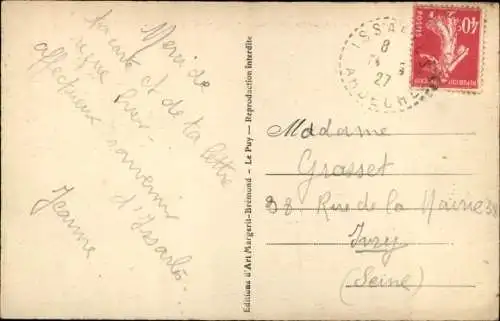 Merci de
ta carte et de ta lettre
reçue hier.
affectueux souvenir
d'Issarlès.
Jeanne
Editions d'Art Margerit-Brémond - Le Puy - Reproduction Interdite
ISSA
8
27
ARDECHE
POSTES
40c
Madame
Grasset
38 Rue de la Mairie 38
Ivry
(Seine)